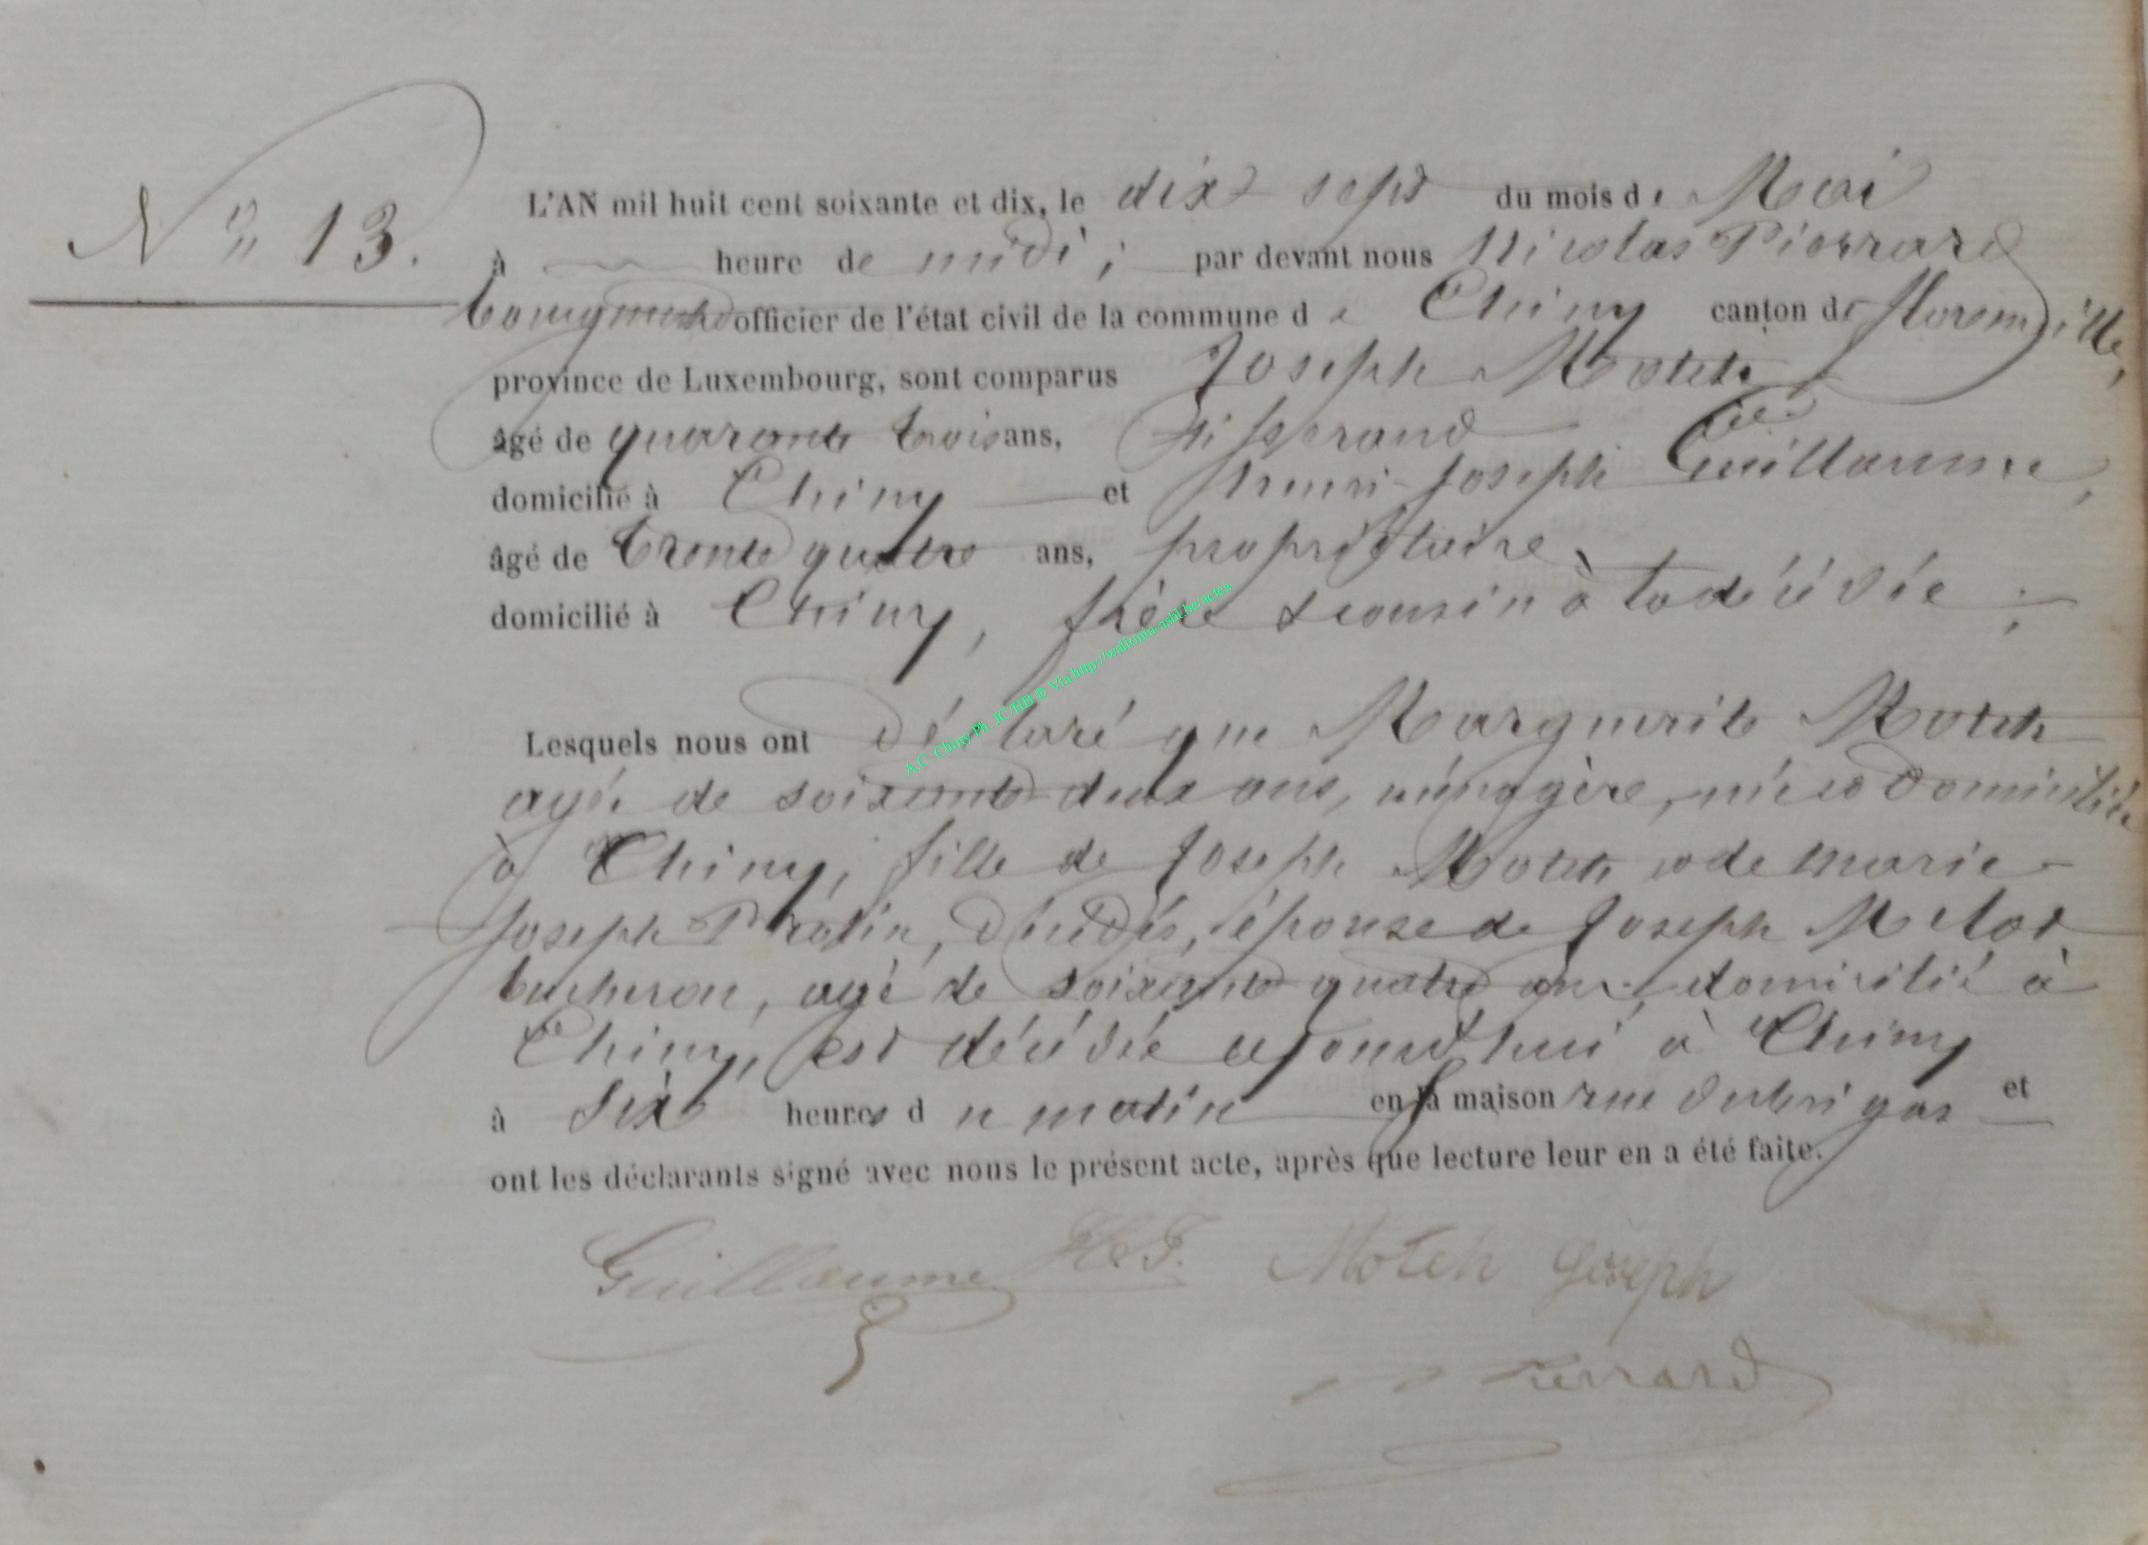 N° 13.
L'AN mil huit cent soixante et dix, le dix sept du mois de Mai
à heure de midi ; par devant nous Nicolas Pierrard
bourgmestre officier de l'état civil de la commune de Chiny canton de Florenville,
province de Luxembourg, sont comparus Joseph Motch
âgé de quarante trois ans, tisserand
domicilié à Chiny et Henri-Joseph Guillaume,
âgé de trente quatre ans, propriétaire,
domicilié à Chiny, frère & cousin à la décédée ;
A.C. Chiny Ph. JC/HB
Lesquels nous ont déclaré que Marguerite Motch
agée de soixante deux ans, ménagère, née et domiciliée
à Chiny, fille de Joseph Motch et de Marie
Joseph décédés, épouse de Joseph Melot
bucheron, agé de soixante quatre ans, domicilié à
Chiny, est décédée aujourd'hui à Chiny
à six heures du matin en sa maison rue et
ont les déclarants signé avec nous le présent acte, après que lecture leur en a été faite.
Guillaume H.J. Motch Joseph
Pierrard